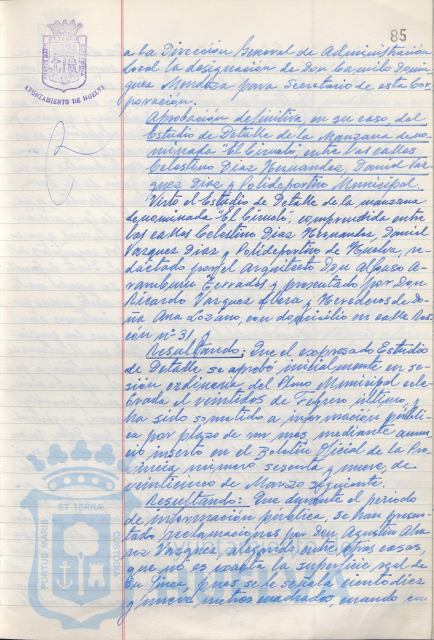 85
AYUNTAMIENTO DE HUELVA
a la Dirección General de Administración
Local la designación de Don Camilo Domin
guez Mendoza para Secretario de esta Cor
poración.
Aprobación definitiva, en su caso, del
Estudio de Detalle de la Manzana deno-
minada "El Ciruelo", entre las calles
Celestino Diaz Hernandez, Daniel Vaz
quez Diaz y Polideportivo Municipal.
Visto el Estudio de Detalle de la manzana
denominada "El Ciruelo", comprendida entre
las calles Celestino Diaz Hernandez, Daniel
Vazquez Diaz y Polideportivo de Huelva, re-
dactado por el arquitecto Don Alfonso A-
ramburu Terrados y presentado por Don
Ricardo Vazquez y Herederos de do-
ña Ana Lozano, con domicilio en calle Ra-
són nº 31
Resultando: Que el expresado Estudio
de Detalle se aprobó inicialmente en se-
sión ordinaria del Pleno Municipal cele-
brada el veintidos de Febrero último, y
ha sido sometido a información públi-
ca por plazo de un mes mediante anun-
cio inserto en el Boletín Oficial de la Pro-
vincia número sesenta y nueve, de
veinticinco de Marzo siguiente.
Resultando: Que durante el periodo
de información pública, se han presen-
tado reclamaciones por Don Agustin Alva
rez Vazquez, alegando, entre otras cosas,
que no es exacta la superficie real de
su finca, pues se le señala ciento diez
y nueve metros cuadrados, cuando en
PORTUS MARIS ET TERRAE CUSTODIA